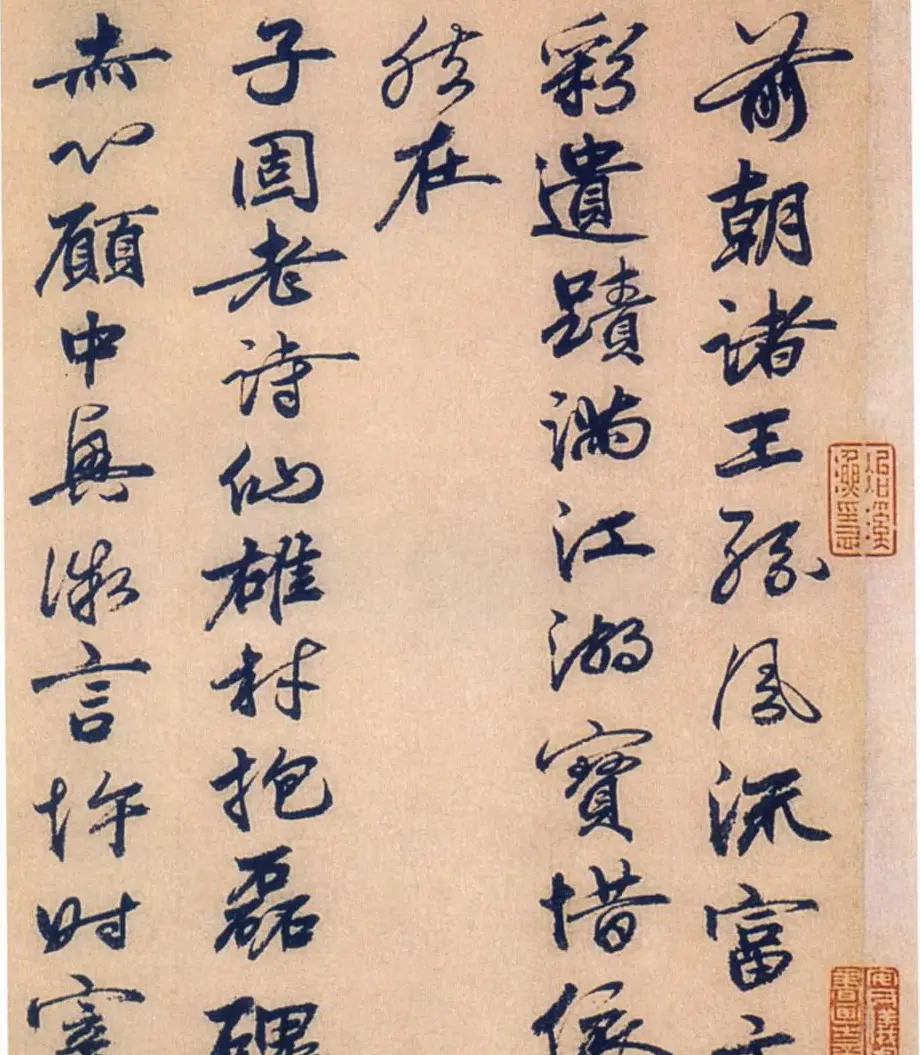 前朝諸王孫風流富文
彩遺蹟滿江湖寶惜
然在
子固老詩仙雄材抱磊
赤心願中興微言忤時宰